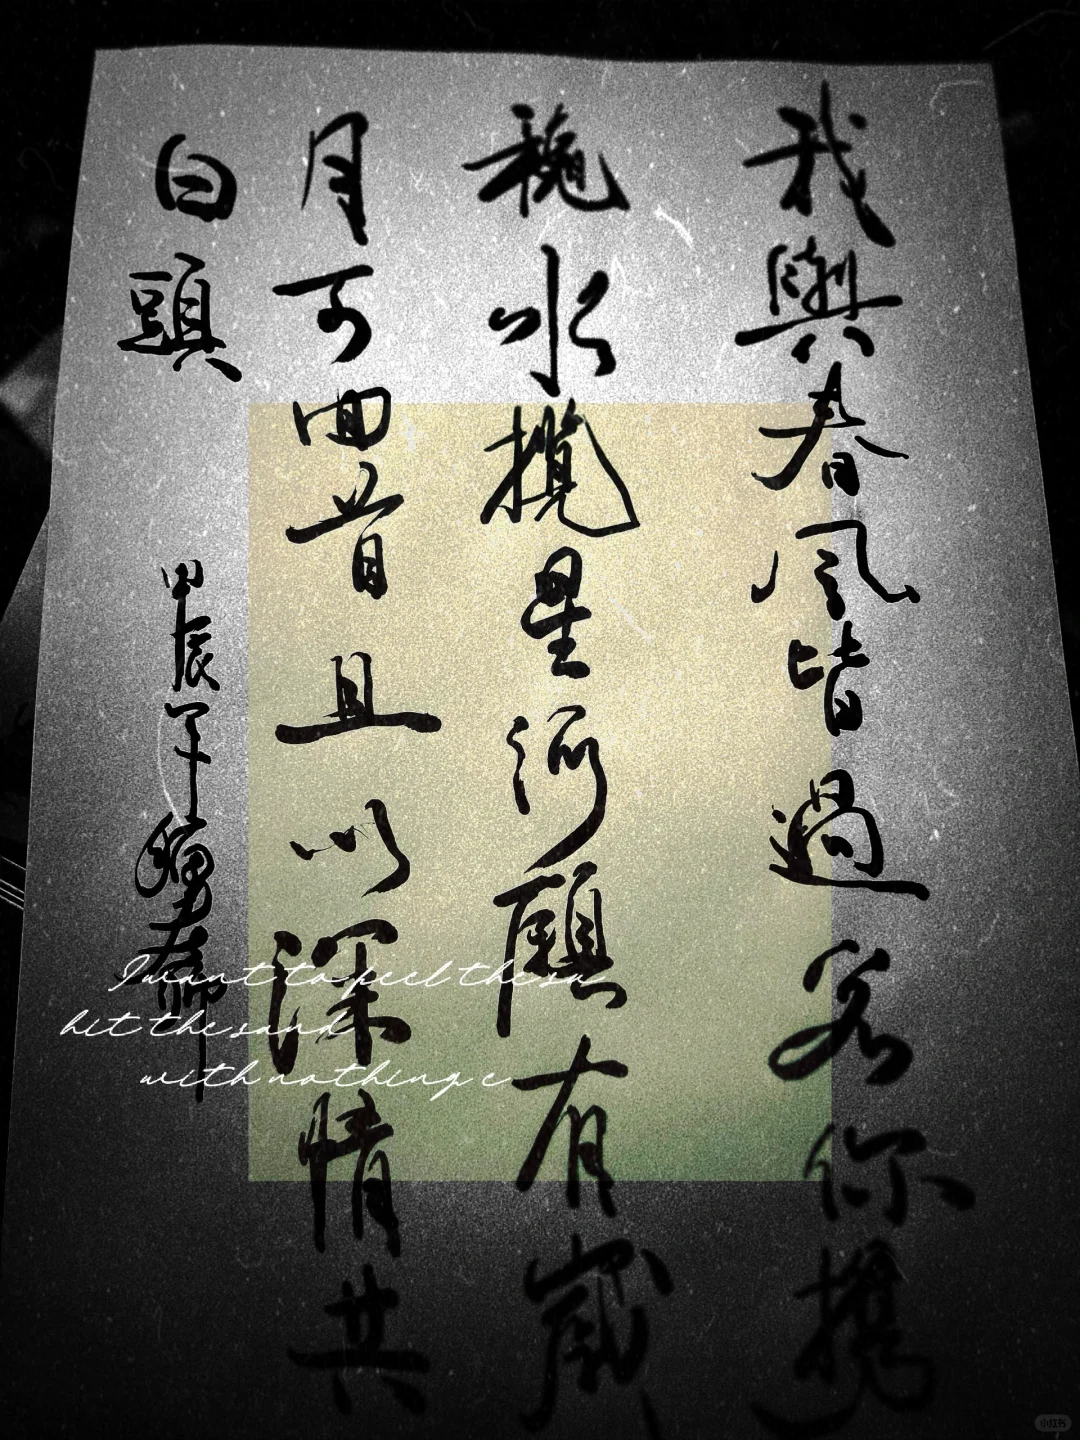 我與春風皆過客你攜
穐水攬星河願有歲
月可回首且以深情共
白頭
甲辰年
I want to feel the su
hit the sand
with nothing e
小红书